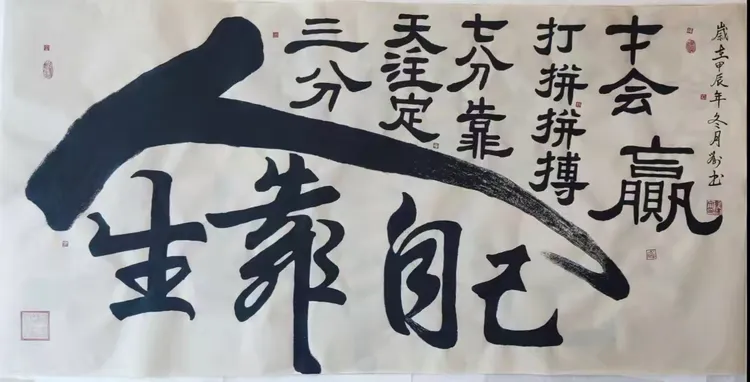 人生靠自己
三分
天注定
七分靠
打拼拼搏
才会贏
歲在甲辰年冬月书